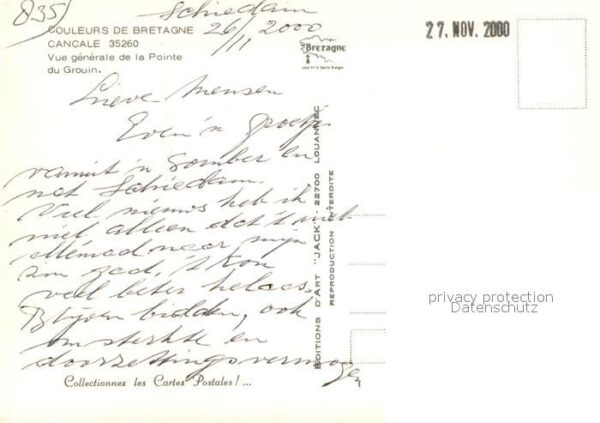 835)
Schiedam
26/11 2000
COULEURS DE BRETAGNE
CANCALE 35260
Vue générale de la Pointe
du Grouin.
Bretagne
27. NOV. 2000
Lieve mensen
Even 'n groetje
vanuit 'n somber en
nat Schiedam.
Veel nieuws heb ik
niet alleen dat 't niet
allemaal naar mijn
zin gaat, 't kon
veel beter helaas.
Blijven bidden, ook
om sterkte en
doorzettingsvermogen
EDITIONS D'ART "JACK" 22700 LOUANNEC
REPRODUCTION INTERDITE
privacy protection
Datenschutz
Collectionnez les Cartes Postales !...